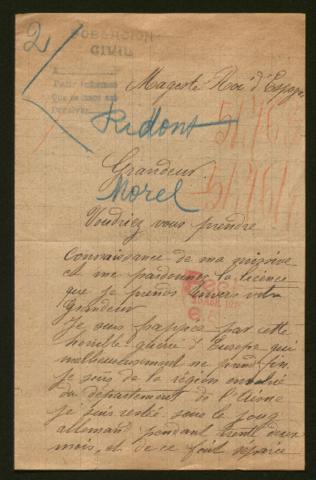 2
GOBERCION
CIVIL
A
Pedir informes
Que se hace sab
Majesté Roi d'Espagne
Ridont
51761
Grandeur.
Morel
51761
Voudriez vous prendre
connaissance de ma missive
et me pardonner la licence
que je prends envers votre
Grandeur
Je suis frappée par cette
horrible guerre d'Europe qui
malheureusement ne prend fin.
Je suis de la région envahie
du département de l'Aisne
je suis restée sous le joug
allemand pendant trente deux
mois, et de ce fait séparée